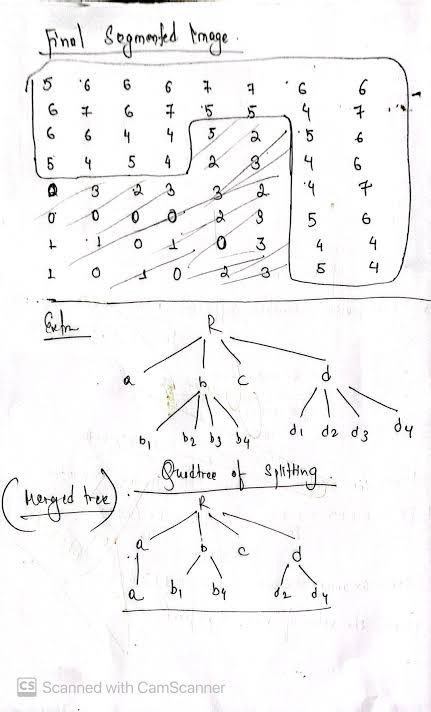 Final Segmented Image.
5 6 6 6 7 7 6 6
6 7 6 7 5 5 4 7
6 6 4 4 5 2 5 6
5 4 5 4 2 3 4 6
0 3 2 3 3 2 4 7
0 0 0 0 2 3 5 6
1 1 0 1 0 3 4 4
1 0 1 0 2 3 5 4
R
a b c d
b1 b2 b3 b4 d1 d2 d3 d4
Quadtree of splitting.
(Merged tree)
R
a b c d
a b1 b4 d2 d4
CS Scanned with CamScanner